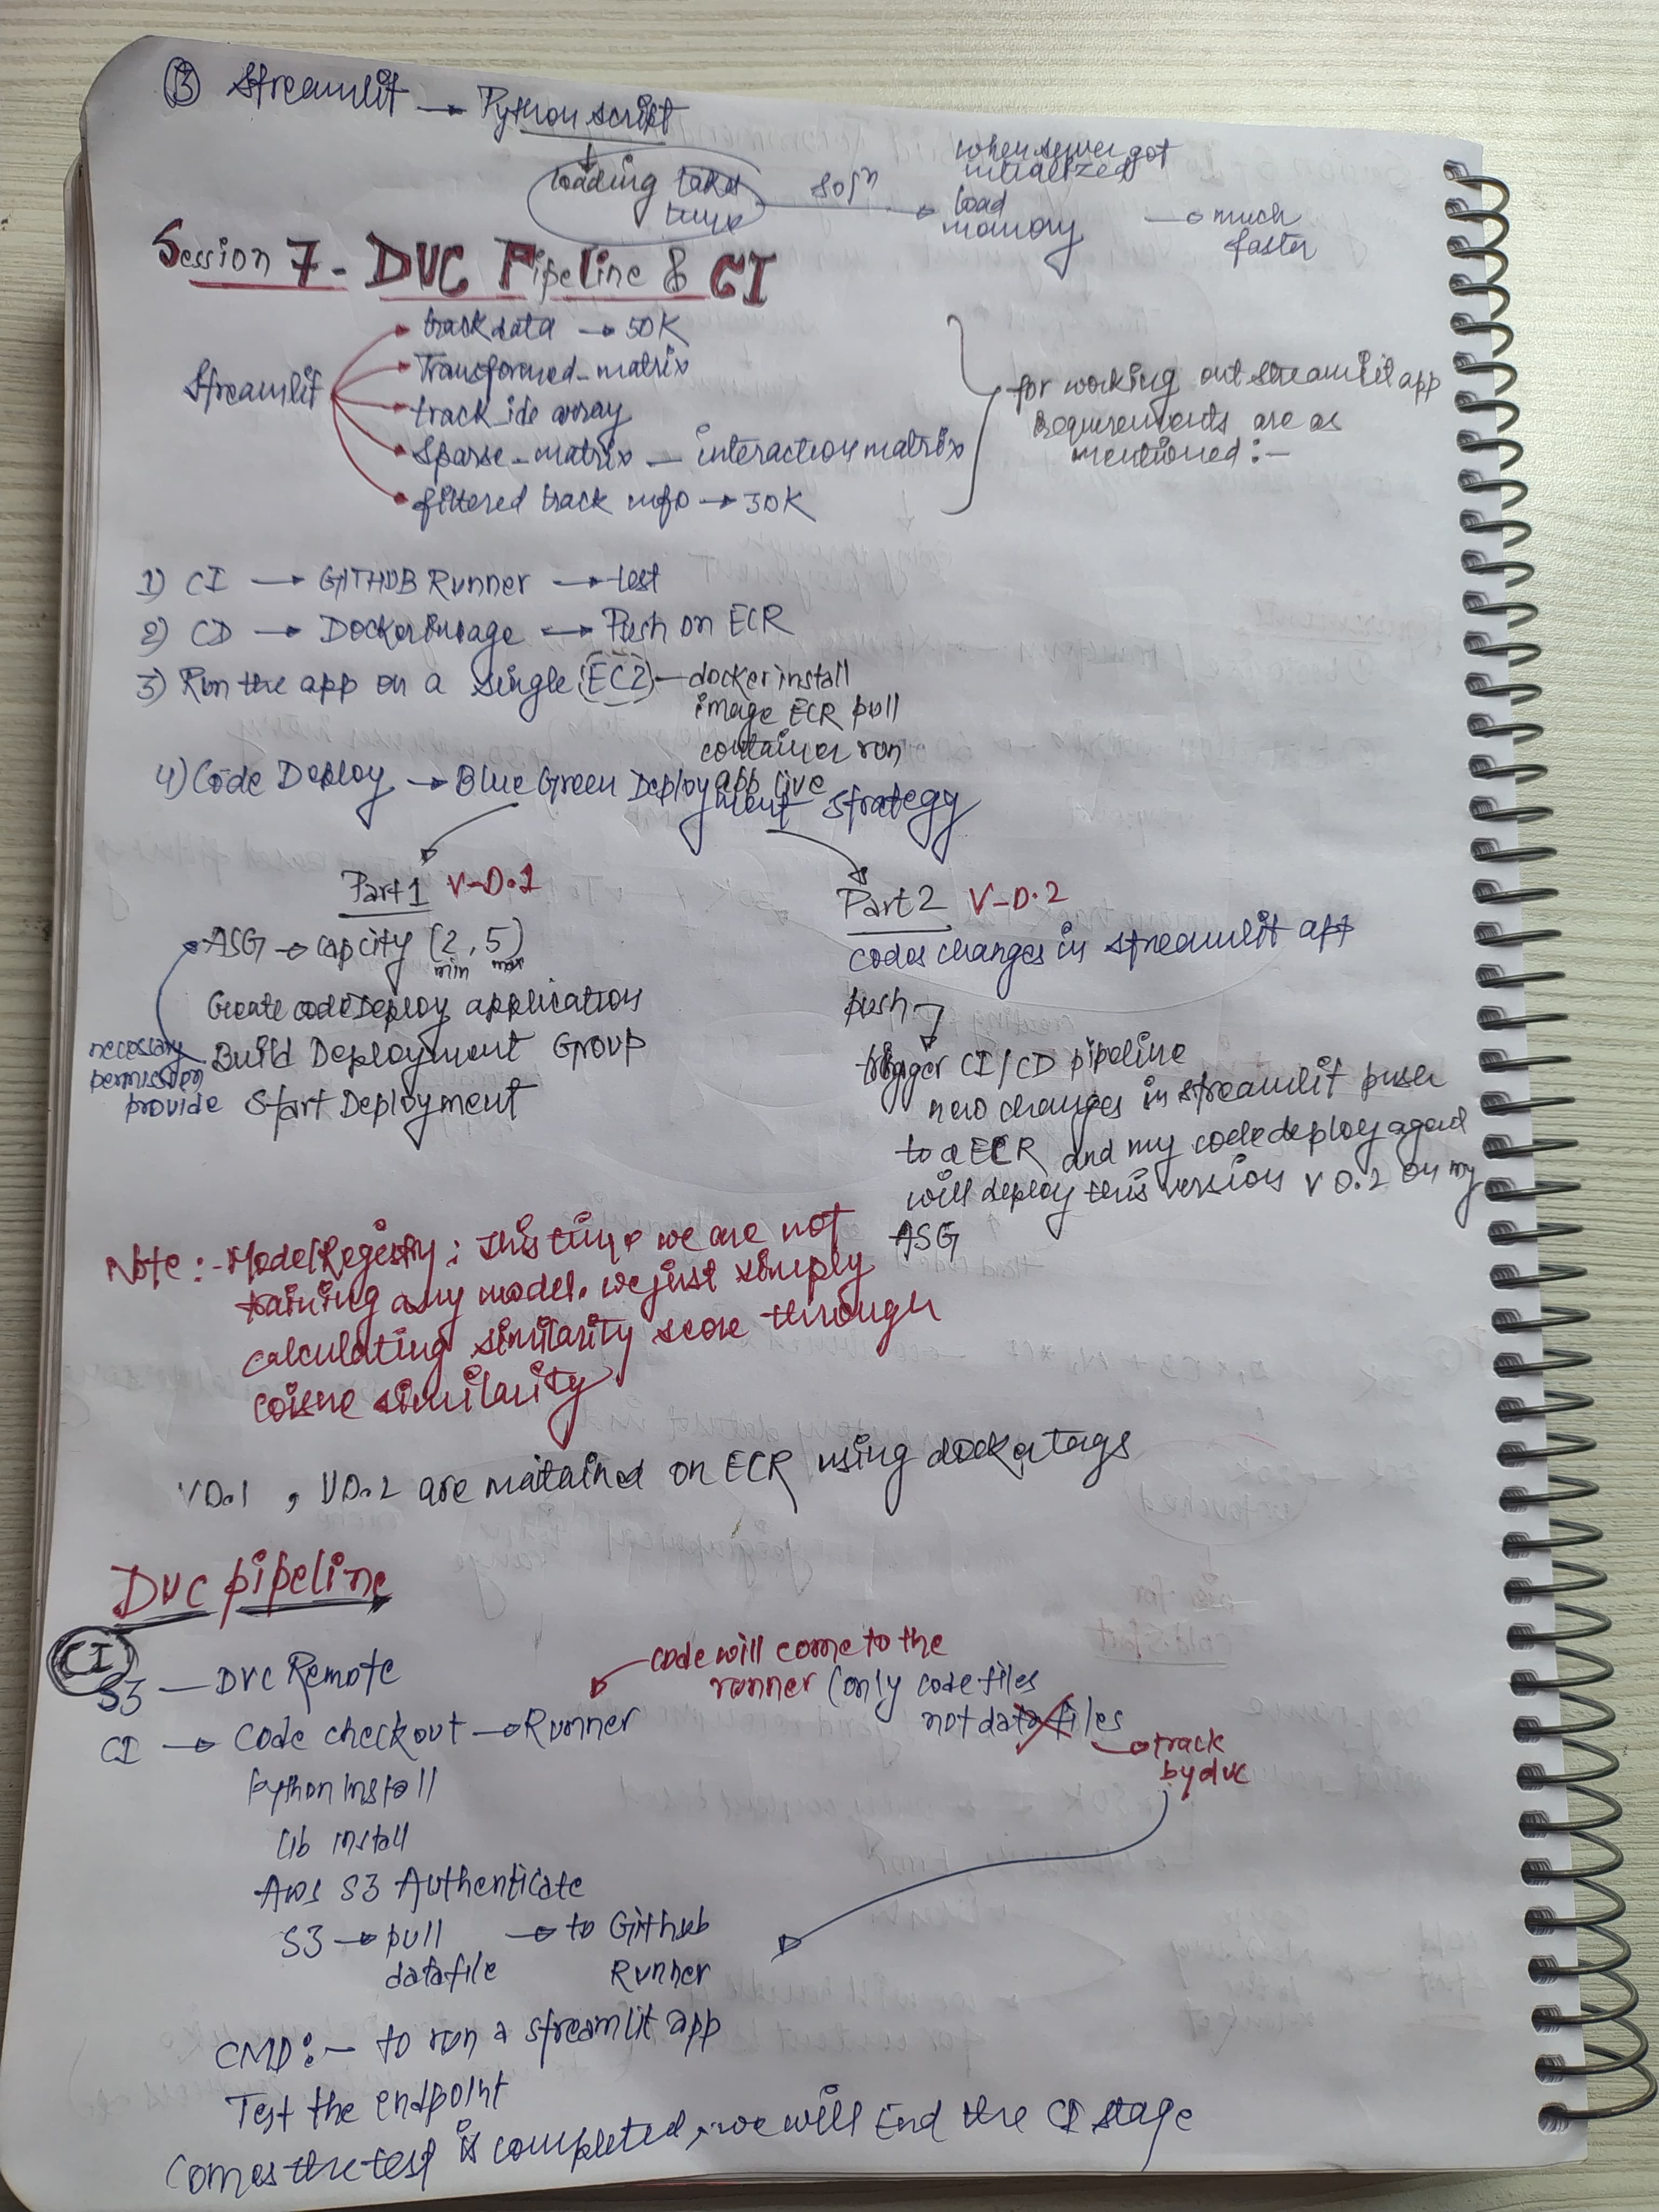 ③ Streamlit → Python script
loading takes time → solⁿ → when server got initialized load memory → much faster
Session 7 - DVC Pipeline & CI
Streamlit
track data → 50K
Transformed_matrix
track_ids array
Sparse_matrix — interaction matrix
filtered track info → 30K
for working out streamlit app
Requirements are as
mentioned :-
1) CI → GITHUB Runner → test
2) CD → Docker Image → Push on ECR
3) Run the app on a single EC2 — docker install
image ECR pull
container run
app live
4) Code Deploy → Blue Green Deployment Strategy
Part 1 V-0.1
ASG → capcity (2, 5)
min max
Create code Deploy application
Build Deployment Group
Start Deployment
necessary
permission
provide
Part 2 V-0.2
codes changes in streamlit app
push
trigger CI/CD pipeline
new changes in streamlit push
to a ECR and my code deploy again
will deploy this version v 0.2 on my
ASG
Note :- Model Registry : This time we are not
training any model. we just simply
calculating similarity score through
coisne similarity
V0.1 , V0.2 are matained on ECR using docker tags
DVC pipeline
CI
S3 — DVC Remote
CI → Code checkout → Runner
code will come to the
runner (only code files
not data files
track
by dvc
Python Install
Lib install
Aws S3 Authenticate
S3 → pull → to Github
datafile Runner
CMD :- to run a streamlit app
Test the endpoint
Comes the test is completed, we will End the CI stage